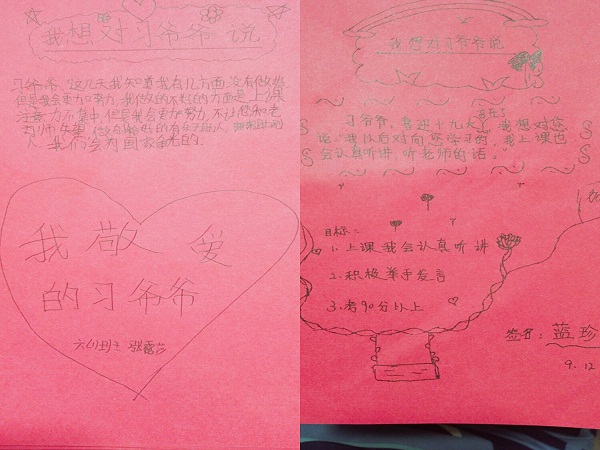 我想对习爷爷说
习爷爷,这几天我知道我有几方面没有做好
但是我会更加努力,我做的不好的方面是上课
注意力不集中,但是我会更加努力,不让您和老
师失望
人,我们会为国家争光的。
我敬爱
的习爷爷
六(1)班
我想对习爷爷说
习爷爷,喜迎十九大,我想对您
说:我以后对向您学习的,我上课也
会认真听讲,听老师的话。
目标:
1.上课我会认真听讲
2.积极举手发言
3.考90分以上
签名:蓝珍
9.12